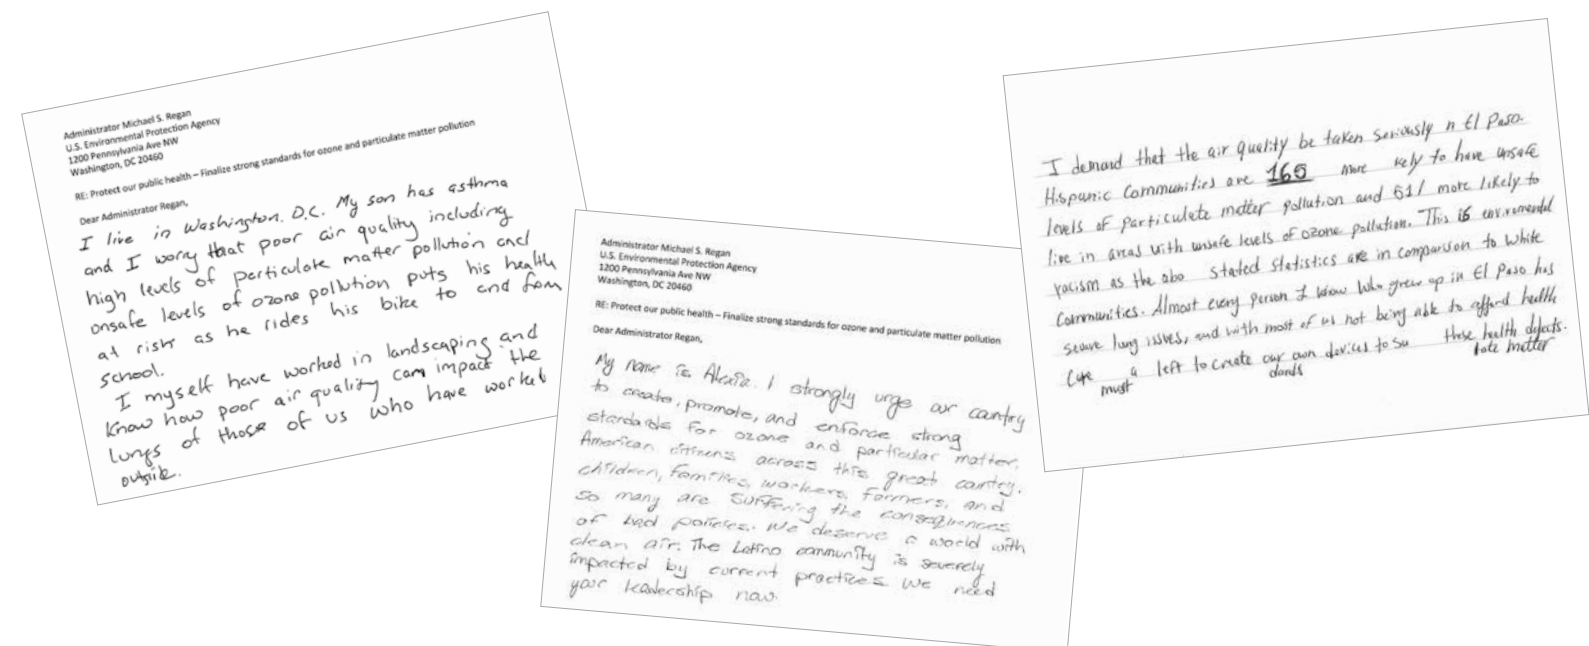 Administrator Michael S. Regan
U.S. Environmental Protection Agency
1200 Pennsylvania Ave NW
Washington, DC 20460
RE: Protect our public health – Finalize strong standards for ozone and particulate matter pollution
Dear Administrator Regan,
I live in Washington. D.C. My son has asthma
and I worry that poor air quality including
high levels of particulate matter pollution and
unsafe levels of ozone pollution puts his health
at risk as he rides his bike to and from
school.
I myself have worked in landscaping and
know how poor air quality can impact the
lungs of those of us who have worked
outside.
Administrator Michael S. Regan
U.S. Environmental Protection Agency
1200 Pennsylvania Ave NW
Washington, DC 20460
RE: Protect our public health – Finalize strong standards for ozone and particulate matter pollution
Dear Administrator Regan,
My name is Alexia. I strongly urge our country
to create, promote, and enforce strong
standards for ozone and particular matter.
American citizens across this great country.
children, families, workers, farmers, and
so many are suffering the consequences
of bad policies. We deserve a world with
clean air. The Latino community is severely
impacted by current practices. We need
your leadership now.
I demand that the air quality be taken seriously n El Paso.
Hispanic Communities are 165 more kely to have unsafe
levels of particulate matter pollution and 51/ more likely to
live in areas with unsafe levels of ozone pollution. This is enviromental
racism as the abo stated statistics are in comparison to white
Communities. Almost every person I know who grew up in El Paso has
severe lung issues, and with most of us not being able to afford health
Care a left to create our own devices to su these health defects.
must dards late matter